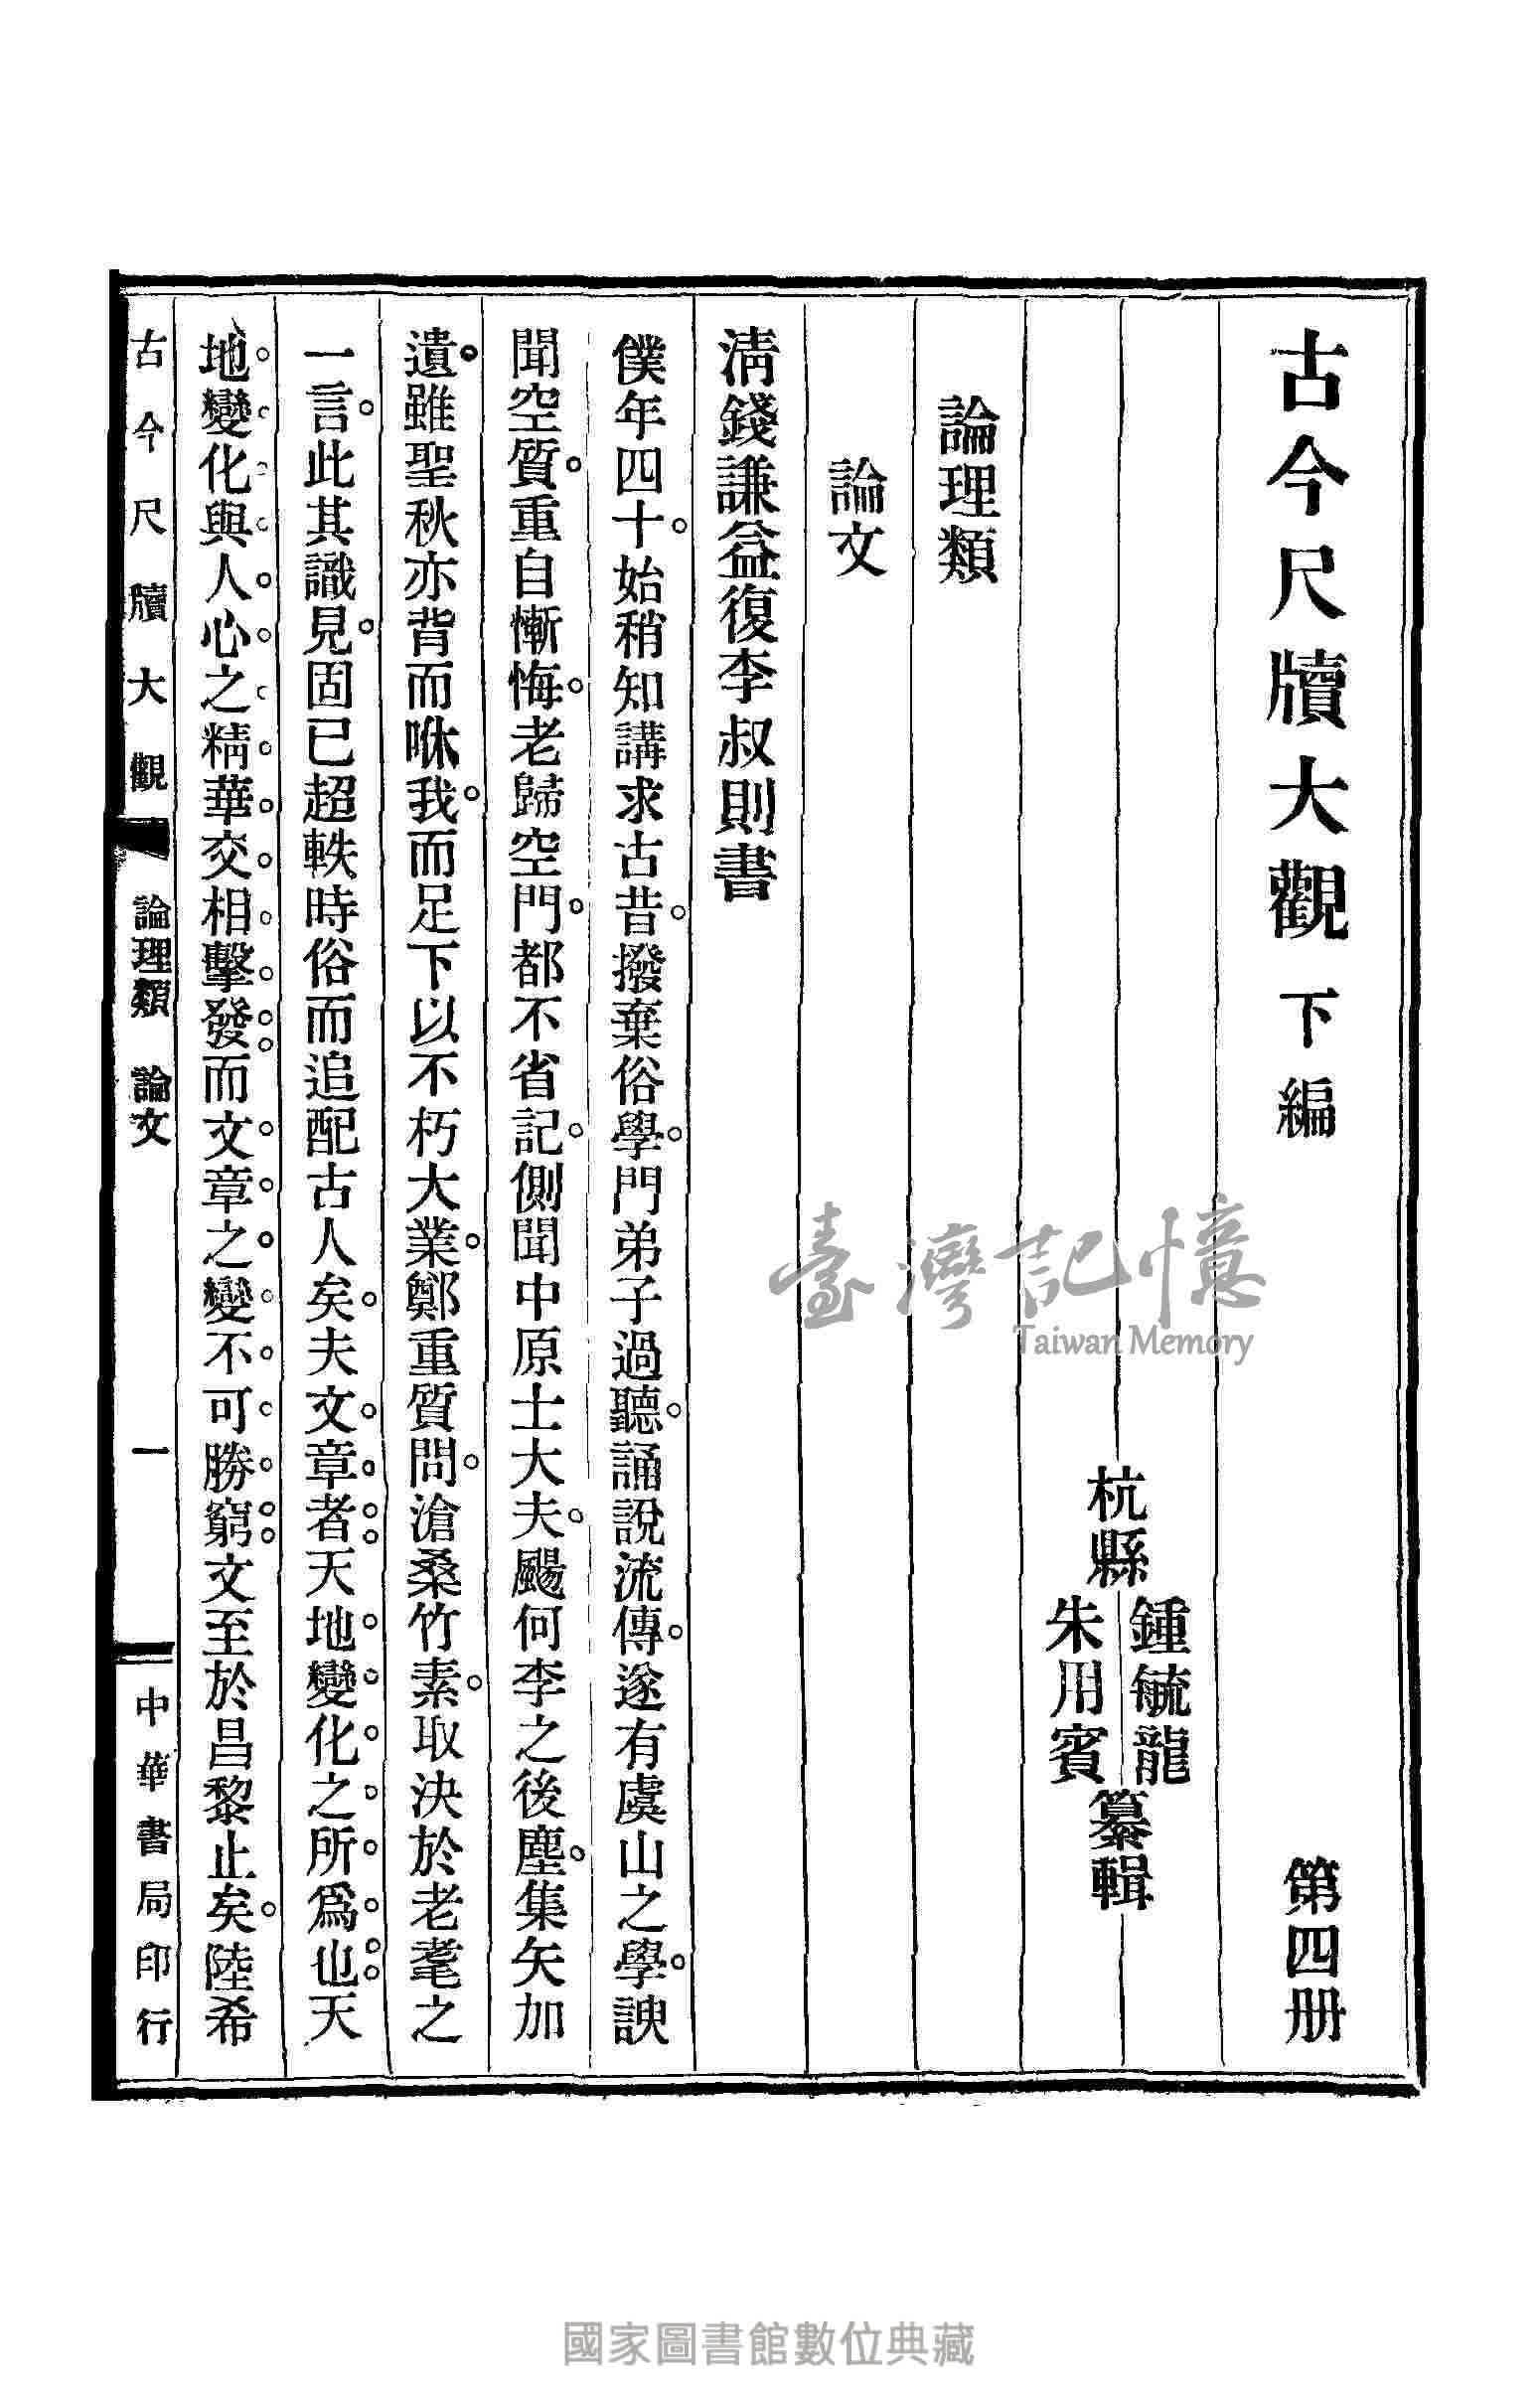 古今尺牘大觀 下編 第四册
杭縣 鍾毓龍 朱用賓 纂輯
論理類
論文
淸錢謙益復李叔則書
僕年四十。始稍知講求古昔。撥棄俗學。門弟子過聽。誦說流傳。遂有虞山之學。諛
聞空質。重自慚悔。老歸空門。都不省記。側聞中原士大夫。颺何李之後塵。集矢加
遺。雖聖秋亦背而咻我。而足下以不朽大業。鄭重質問。滄桑竹素。取決於老耄之
一言。此其識見。固已超軼時俗而追配古人矣。夫文章者。天地變化之所爲也。天
地變化與人心之精華交相擊發。而文章之變不可勝窮。文至於昌黎止矣。陸希
古今尺牘大觀 論理類 論文 一 中華書局印行
臺灣記憶
Taiwan Memory
國家圖書館數位典藏